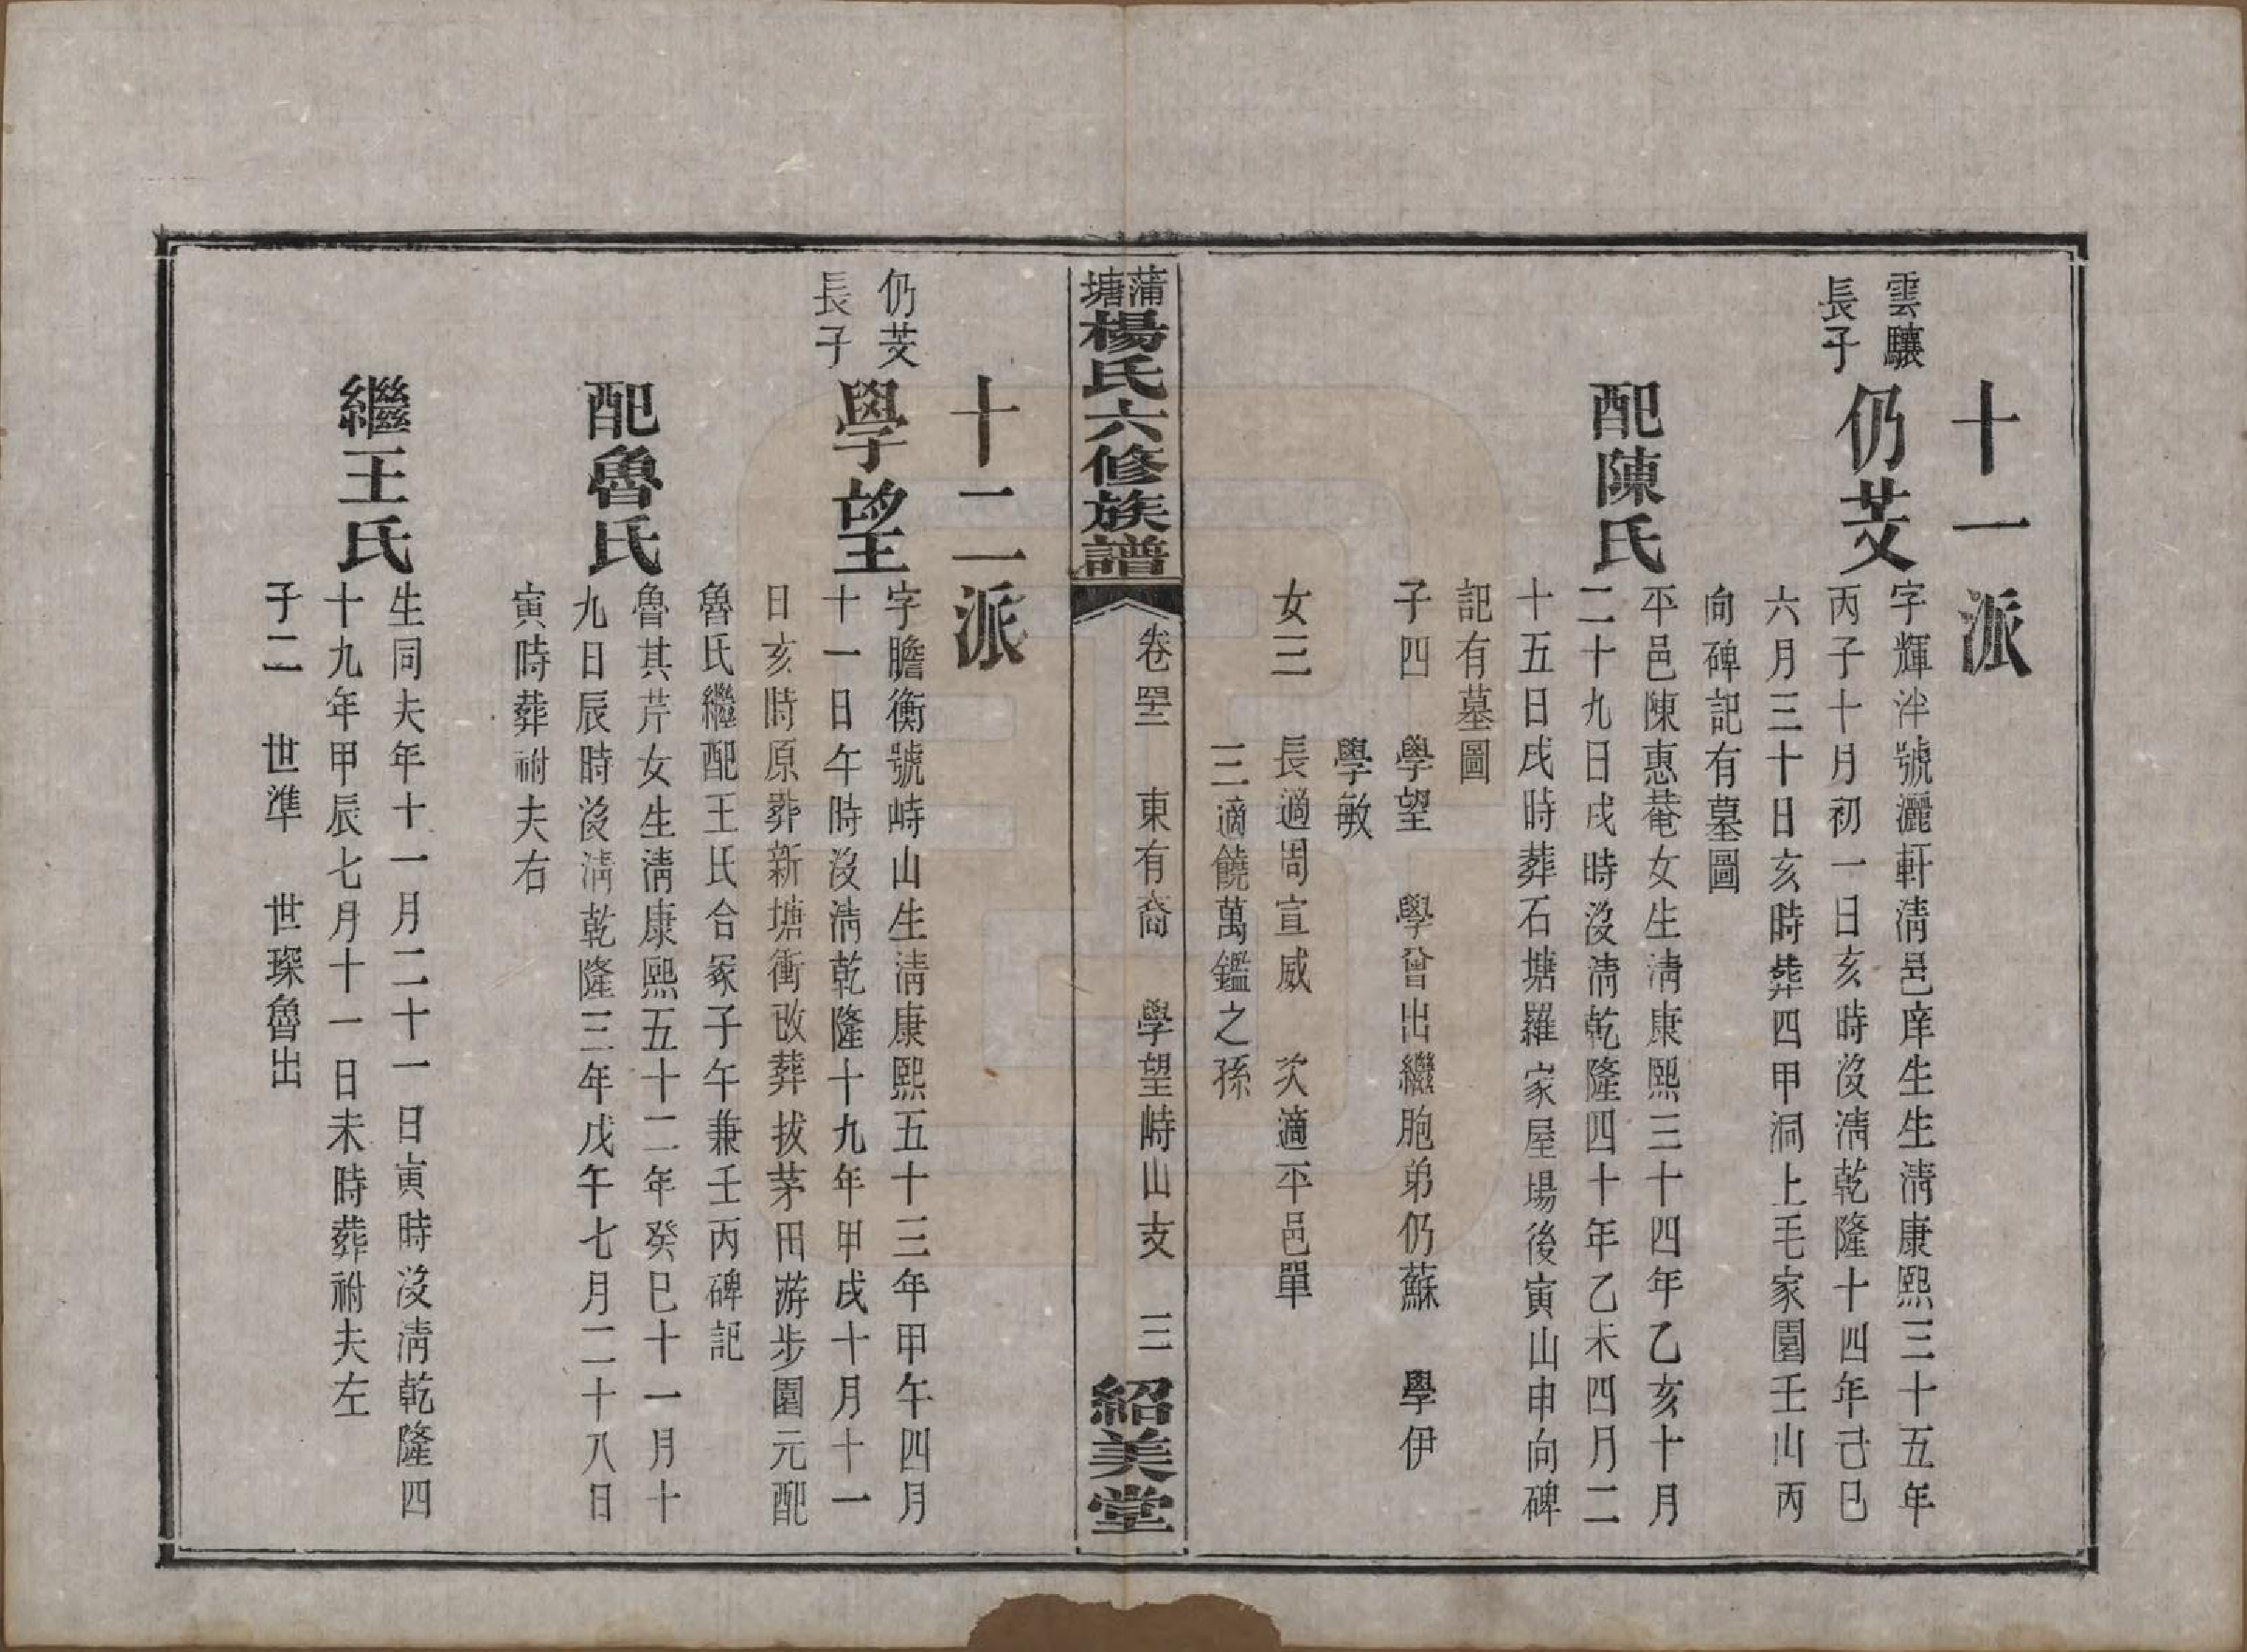 十一派
雲驤
長子
仍芠
字輝泮號灑軒淸邑庠生生淸康熙三十五年
丙子十月初一日亥時沒淸乾隆十四年己巳
六月三十日亥時葬四甲洞上毛家園壬山丙
向碑記有墓圖
配陳氏
平邑陳惠菴女生淸康熙三十四年乙亥十月
二十九日戌時沒淸乾隆四十年乙未四月二
十五日戌時葬石塘羅家屋場後寅山申向碑
記有墓圖
子四 學望 學曾出繼胞弟仍蘇 學伊
學敏
女三 長適周宣威 次適平邑單
三適饒萬鑑之孫
蒲塘楊氏六修族譜
卷 東有裔 學望峙山支 三
紹美堂
十二派
仍芠
長子
學望
字瞻衡號峙山生淸康熙五十三年甲午四月
十一日午時沒淸乾隆十九年甲戌十月十一
日亥時原葬新塘衝改葬拔茅田游步園元配
魯氏繼配王氏合冢子午兼壬丙碑記
配魯氏
魯其芹女生淸康熙五十二年癸巳十一月十
九日辰時沒淸乾隆三年戊午七月二十八日
寅時葬祔夫右
繼王氏
生同夫年十一月二十一日寅時沒淸乾隆四
十九年甲辰七月十一日未時葬祔夫左
子二 世準 世琛魯出